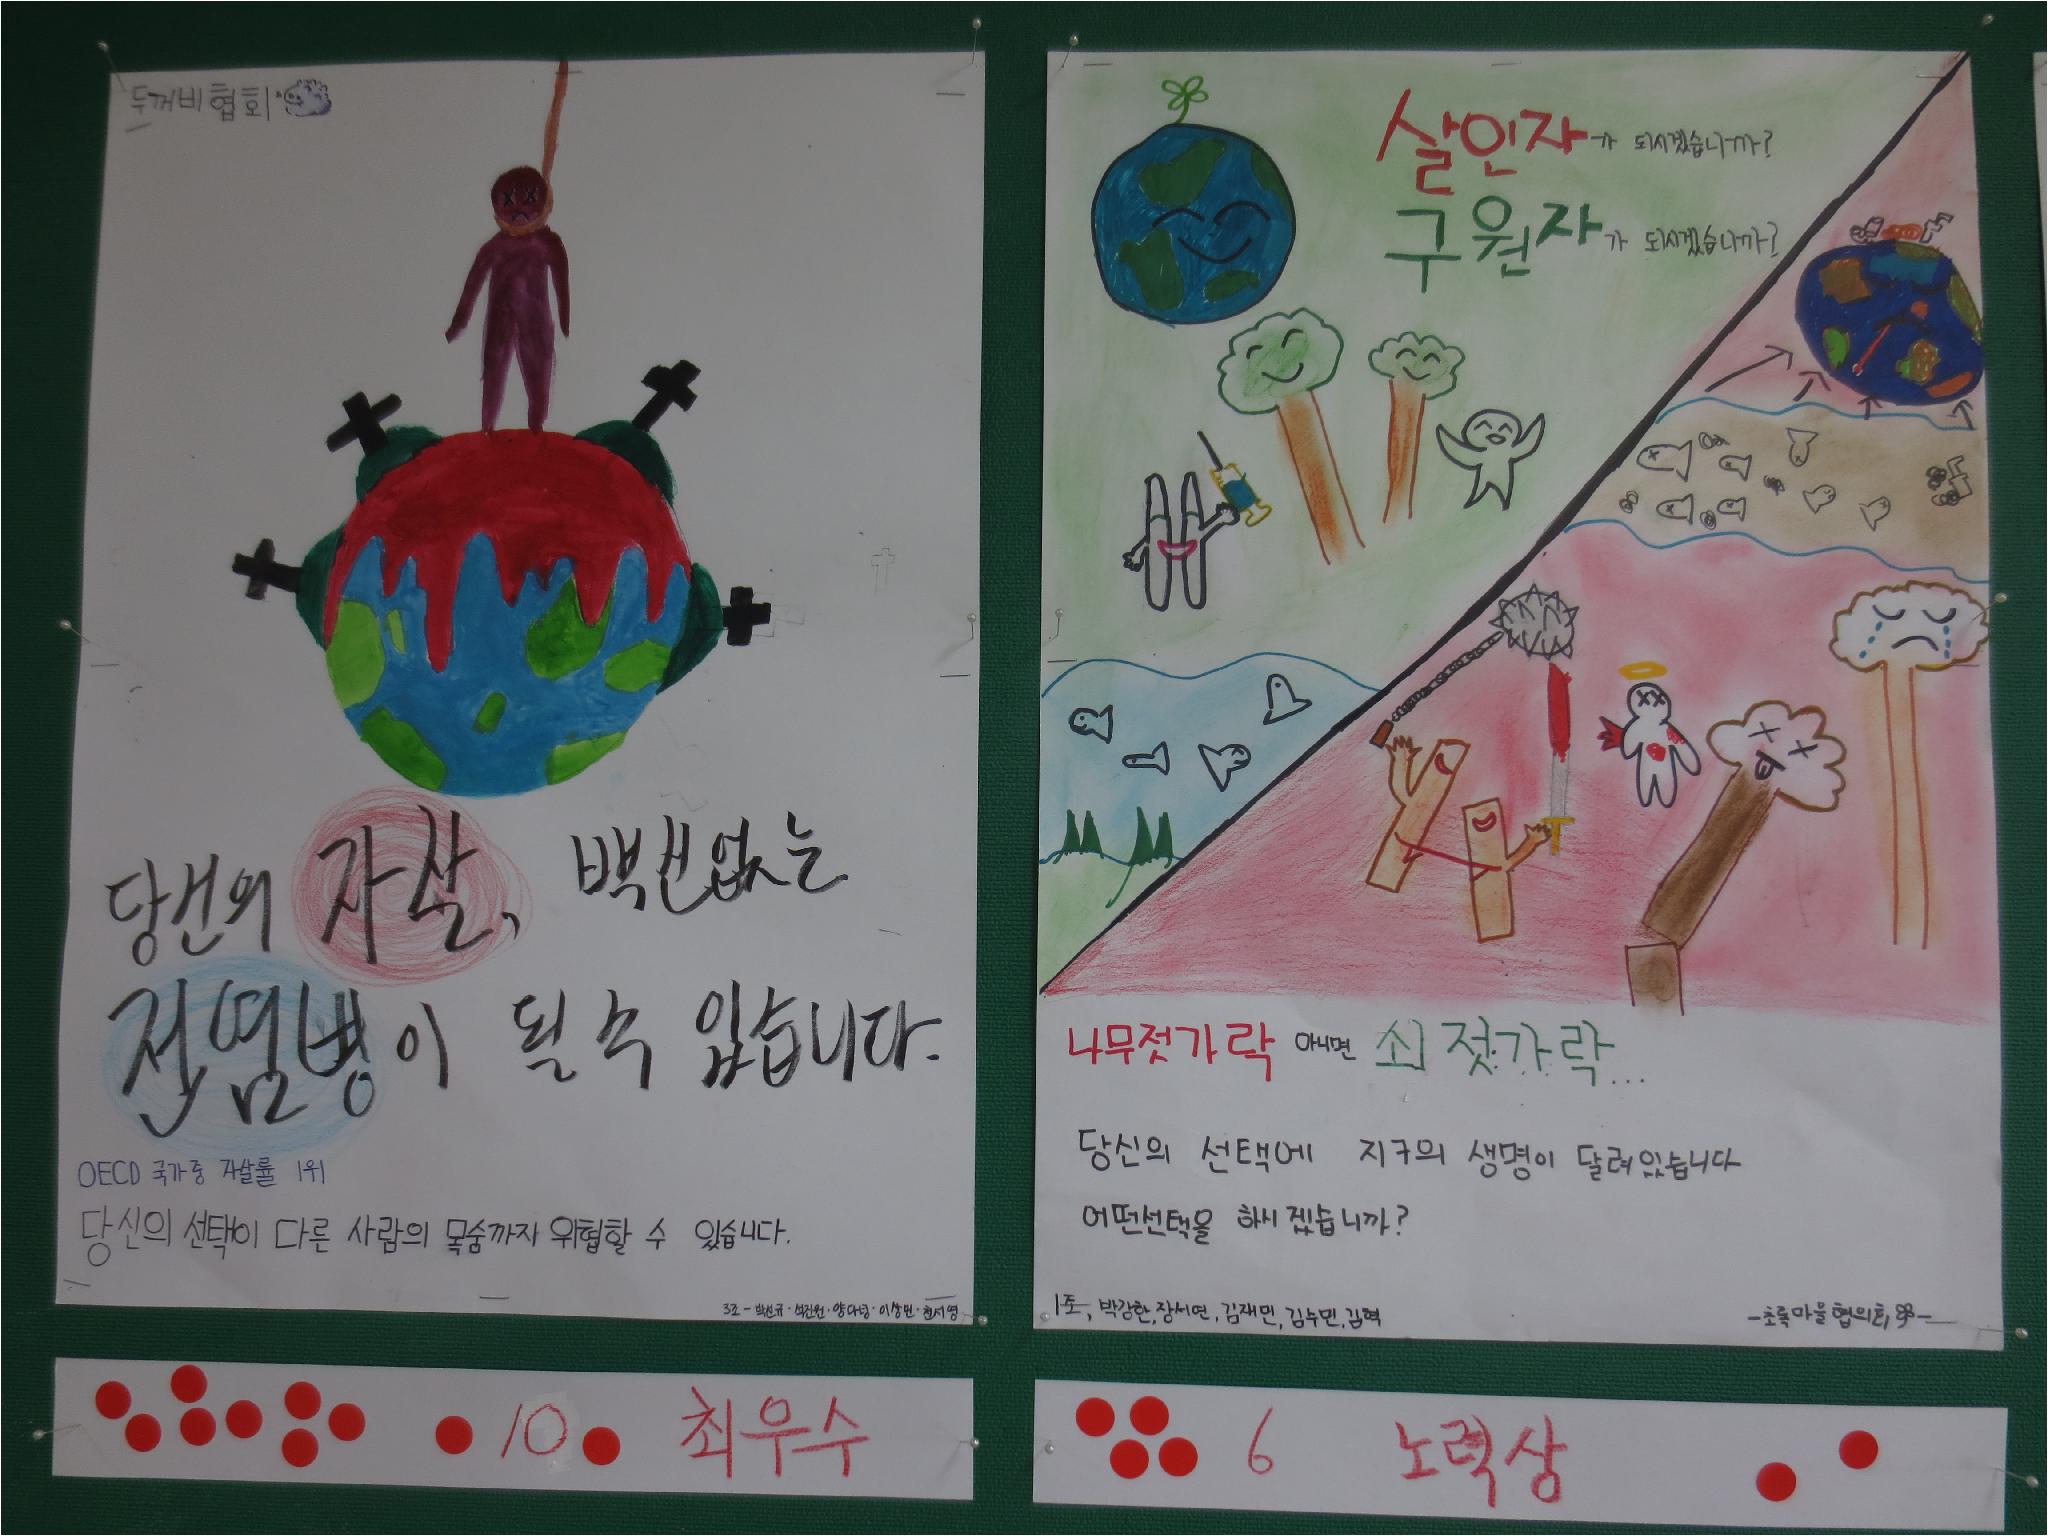 두꺼비협회
당신의 자살, 백신없는
전염병이 될 수 있습니다.
OECD 국가중 자살률 1위
당신의 선택이 다른 사람의 목숨까지 위협할 수 있습니다.
3조 - 박선규·석진원·양다녕·이상민·천서영
10 최우수
살인자가 되시겠습니까?
구원자가 되시겠습니까?
나무젓가락 아니면 쇠젓가락...
당신의 선택에 지구의 생명이 달려있습니다
어떤선택을 하시겠습니까?
1조, 박강한, 장서연, 김재민, 김수민, 김혁
-초록마을협의회-
6 노력상